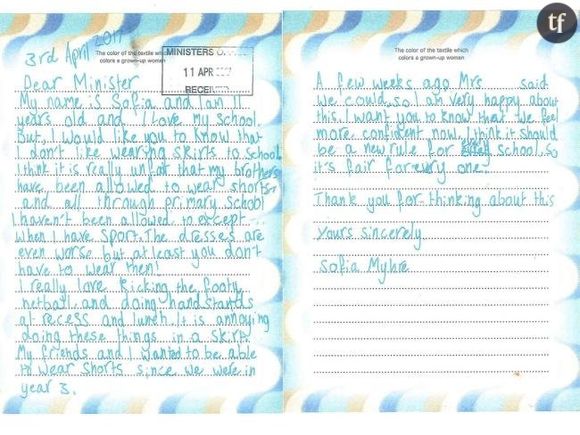 The color of the textile which
colors a grown-up woman
3rd April 2017
MINISTERS
11 APR
RECEIV
Dear Minister
My name is Sofia and I am 11
years old and I love my school.
But, I would like you to know that
I don't like wearing skirts to school
I think it is really unfair that my brothers
have been allowed to wear shorts
and all through primary school
I haven't been allowed to except
when I have sport. The dresses are
even worse but at least you don't
have to wear them!
I really love kicking the footy,
netball and doing handstands
at recess and lunch. It is annoying
doing these things in a skirt.
My friends and I wanted to be able
to wear shorts since we were in
year 3.
tf
The color of the textile which
colors a grown-up woman
A few weeks ago Mrs said
we could, so I am very happy about
this. I want you to know that we feel
more confident now. I think it should
be a new rule for school so
it's fair for every one.
Thank you for thinking about this
Yours sincerely
Sofia Myhre